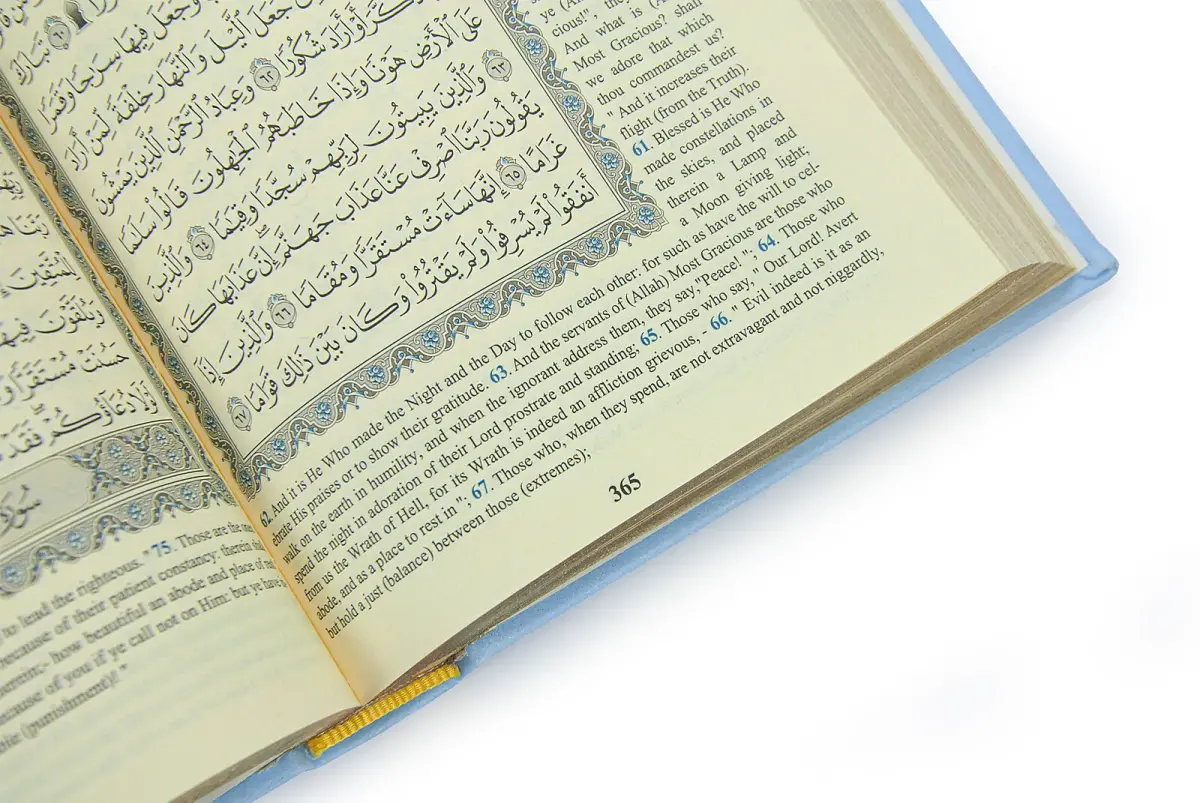 ٦٠ تَبَارَكَ
وَجَعَلَ فِيهَا سِرَاجًا وَقَمَرًا
جَعَلَ ٱلَّيْلَ وَٱلنَّهَارَ خِلْفَةً لِّمَنْ أَرَادَ
أَوْ أَرَادَ شُكُورًا ٦٢ وَعِبَادُ ٱلرَّحْمَٰنِ ٱلَّذِينَ يَمْشُونَ
عَلَى ٱلْأَرْضِ هَوْنًا وَإِذَا خَاطَبَهُمُ ٱلْجَٰهِلُونَ قَالُوا۟ سَلَٰمًا
٦٣ وَٱلَّذِينَ يَبِيتُونَ لِرَبِّهِمْ سُجَّدًا وَقِيَٰمًا ٦٤ وَٱلَّذِينَ
يَقُولُونَ رَبَّنَا ٱصْرِفْ عَنَّا عَذَابَ جَهَنَّمَ إِنَّ عَذَابَهَا كَانَ
غَرَامًا ٦٥ إِنَّهَا سَآءَتْ مُسْتَقَرًّا وَمُقَامًا ٦٦ وَٱلَّذِينَ إِذَآ
أَنفَقُوا۟ لَمْ يُسْرِفُوا۟ وَلَمْ يَقْتُرُوا۟ وَكَانَ بَيْنَ ذَٰلِكَ قَوَامًا ٦٧
cious!", they
And what is
Most Gracious? shall
we adore that which
thou commandest us?
" And it increases their
flight (from the Truth).
61. Blessed is He Who
made constellations in
the skies, and placed
therein a Lamp and
a Moon giving light;
62. And it is He Who made the Night and the Day to follow each other: for such as have the will to cel-
ebrate His praises or to show their gratitude. 63. And the servants of (Allah) Most Gracious are those who
walk on the earth in humility, and when the ignorant address them, they say,"Peace! "; 64. Those who
spend the night in adoration of their Lord prostrate and standing; 65. Those who say, " Our Lord! Avert
from us the Wrath of Hell, for its Wrath is indeed an affliction grievous, - 66. " Evil indeed is it as an
abode, and as a place to rest in "; 67. Those who, when they spend, are not extravagant and not niggardly,
but hold a just (balance) between those (extremes);
365
حَسُنَتْ مُسْتَقَرًّا
لَوْلَا دُعَآؤُكُمْ فَقَدْ
سُورَةُ
to lead the righteous." 75. Those are the
because of their patient constancy: therein
therein;- how beautiful an abode and place of
because of you if ye call not on Him: but ye have
(punishment)! "